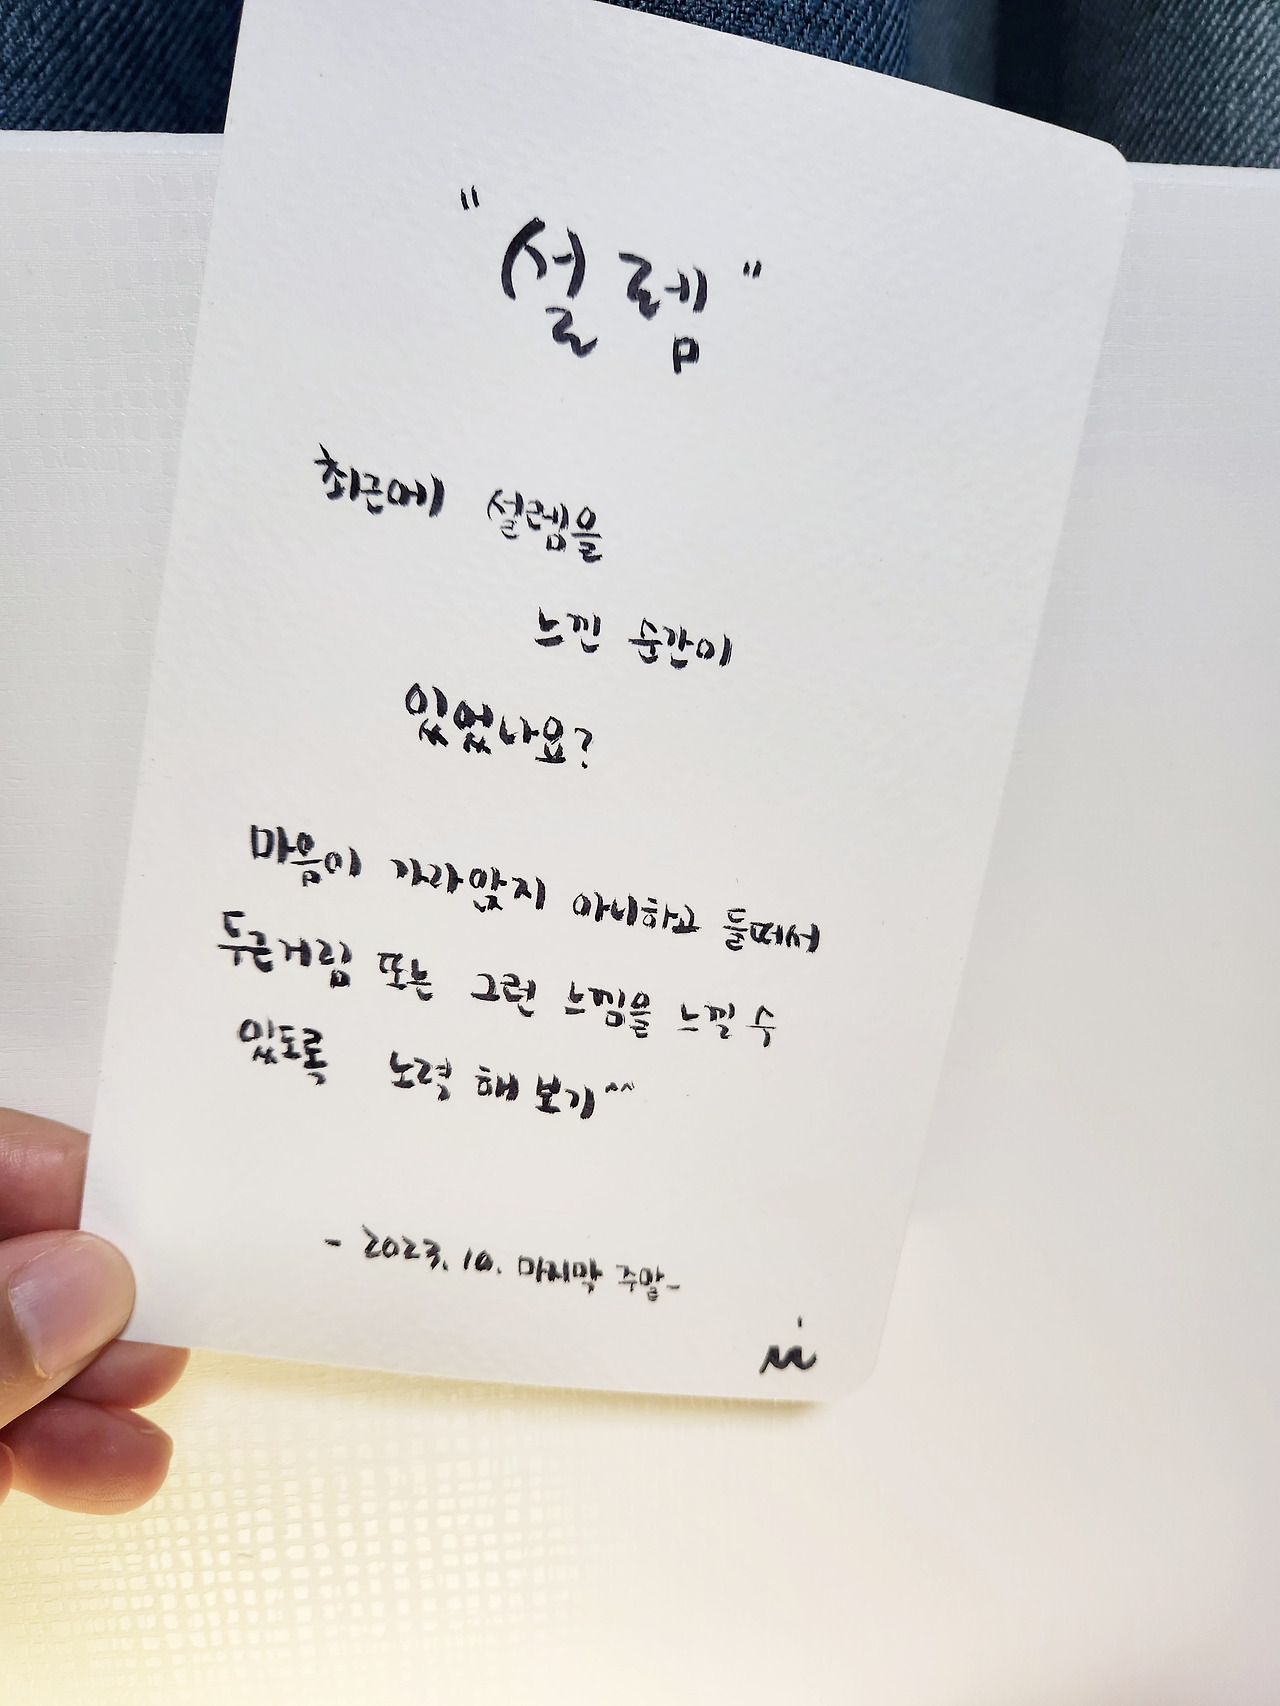 "설렘"
최근에 설렘을
느낀 순간이
있었나요?
마음이 가라앉지 아니하고 들떠서
두근거림 또는 그런 느낌을 느낄 수
있도록 노력 해 보기^^
- 2023. 10. 마지막 주말-